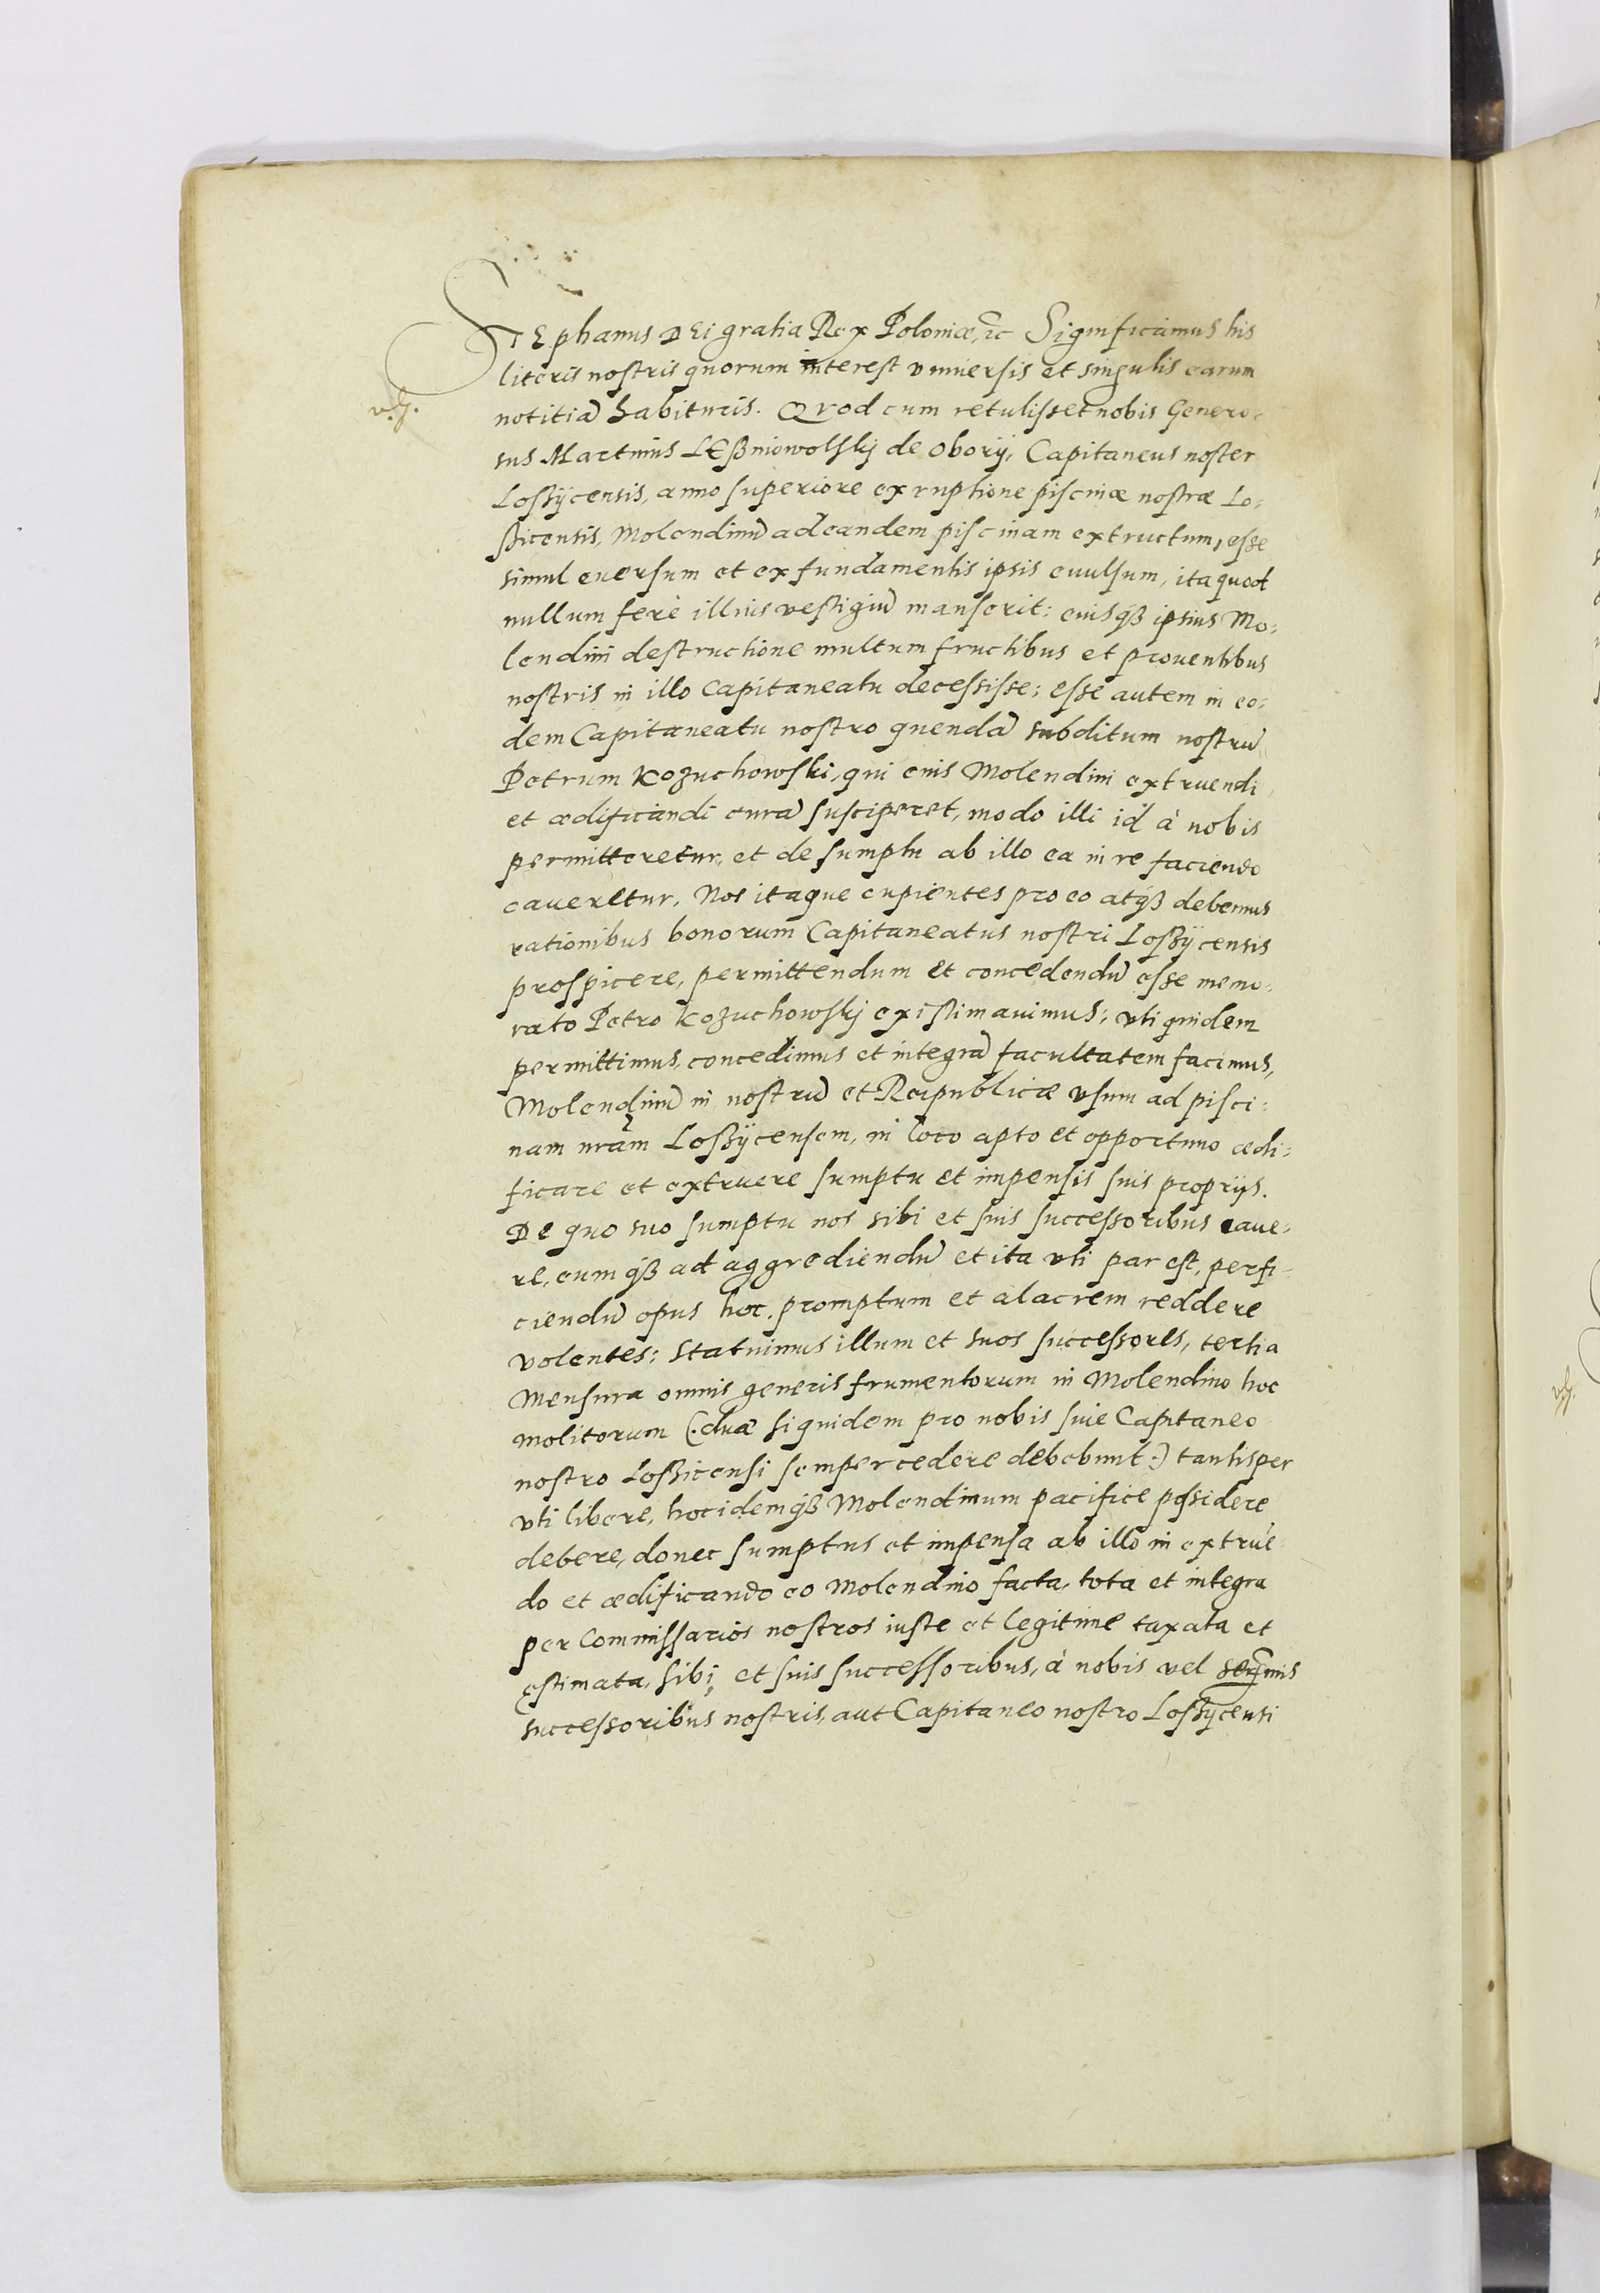 STEphanus DEI gratia Rex Poloniæ, ꝛc Significamus his
literis nostris quorum interest vniuersis et singulis earum
notitiā habituris. Qvod cum retulisset nobis Genero-
sus Martinus LEßniowolsky de Obory, Capitaneus noster
Loßÿcensis, anno superiore ex ruptione piscinæ nostræ Lo-
ßicensis, Molendinū ad eandem piscinam extructum, esse
simul euersum et ex fundamentis ipsis euulsum, ita quod
nullum ferè illius vestigiū manserit: euisqȝ ipsius Mo-
lendini destructione multum fructibus et prouentibus
nostris in illo Capitaneatu decessisse; esse autem in eo-
dem Capitaneatu nostro quendā subditum nostrū
Petrum Kozuchowski, qui eius Molendini extruendi
et ædificandi curā susciperet, modo illi id à nobis
permitteretur, et de sumptu ab illo ea in re faciendo
caueretur. Nos itaque cupientes pro eo atqȝ debemus
rationibus bonorum Capitaneatus nostri Loßÿcensis
prospicere, permittendum et concedendū esse memo-
rato Petro Kozuchowsky existimauimus; vti quidem
permittimus, concedimus et integrā facultatem facimus,
Molendinū in nostrū et Reipublicæ vsum ad pisci-
nam nrām Loßÿcensem, in loco apto et opportuno ædi-
ficare et extruere sumptu et impensis suis proprijs.
De quo suo sumptu nos sibi et suis successoribus caue-
re, eumqȝ ad aggrediendū et ita vti par est, perfi-
ciendū opus hoc, promptum et alacrem reddere
volentes; Statuimus illum et suos successores, tertia
Mensura omnis generis frumentorum in Molendino hoc
molitorum (.duæ siquidem pro nobis siue Capitaneo
nostro Loßicensi semper cedere debebunt.) tantisper
vti libere, hoc idemqȝ Molendinum pacifice possidere
debere, donec sumptus et impensa ab illo in extruē-
do et ædificando eo Molendino facta, tota et integra
per Commissarios nostros iuste et legitime taxata et
ęstimata, sibi et suis successoribus, à nobis vel Serēmis
successoribus nostris, aut Capitaneo nostro Loßÿcensi